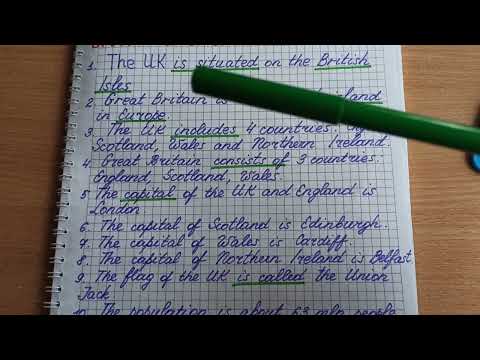 1. The UK is situated on the British
Isles
2. Great Britain is island
in Europe.
3. The UK includes 4 countries:
Scotland, Wales and Northern Ireland.
4. Great Britain consists of 3 countries:
England, Scotland, Wales.
5 The capital of the UK and England is
London
6. The capital of Scotland is Edinburgh.
7. The capital of Wales is Cardiff.
8. The capital of Northern Ireland is Belfast
9. The flag of the UK is called the Union
Jack
10. The population is about 63 mln people